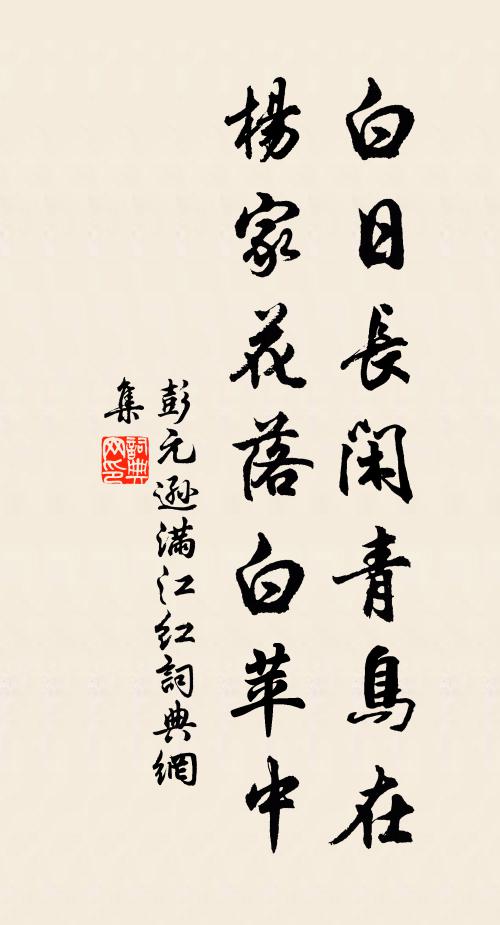 白日長閑青鳥在
楊家花落白苹中
彭元遜滿江紅詞典網
集
詞典網印